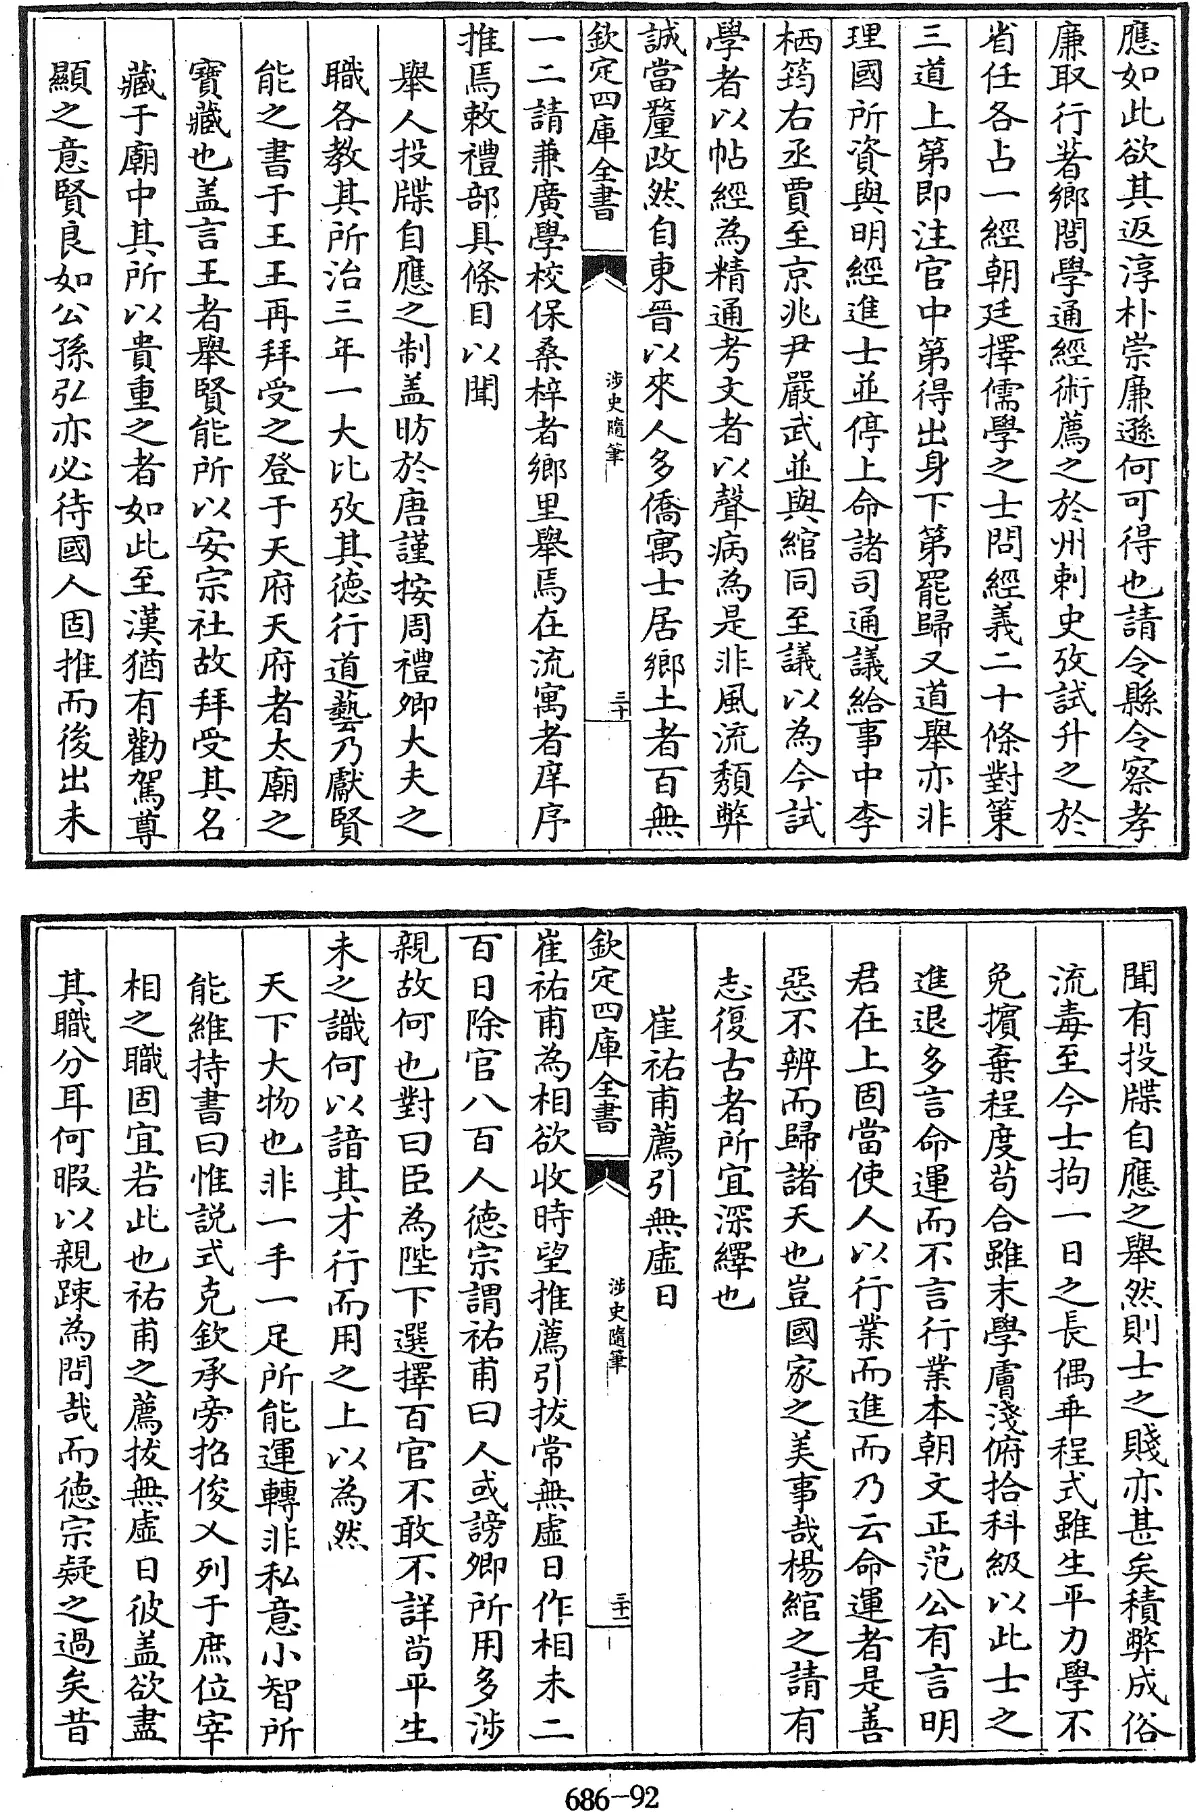 應如此欲其返淳朴崇廉遜何可得也請令縣令察孝
廉取行著鄉閭學通經術薦之於州刺史攷試升之於
省任各占一經朝廷擇儒學之士問經義二十條對策
三道上第即注官中第得出身下第罷歸又道舉亦非
理國所資與明經進士並停上命諸司通議給事中李
栖筠右丞賈至京兆尹嚴武並與綰同至議以為今試
學者以帖經為精通考文者以聲病為是非風流頽弊
誠當釐改然自東晉以來人多僑寓士居鄉土者百無
欽定四庫全書
涉史隨筆
三十
一二請兼廣學校保桑梓者鄉里舉焉在流寓者庠序
推焉敕禮部具條目以聞
舉人投牒自應之制盖昉於唐謹按周禮卿大夫之
職各教其所治三年一大比攷其德行道藝乃獻賢
能之書于王王再拜受之登于天府天府者太廟之
寶藏也盖言王者舉賢能所以安宗社故拜受其名
藏于廟中其所以貴重之者如此至漢猶有勸駕尊
顯之意賢良如公孫弘亦必待國人固推而後出未
聞有投牒自應之舉然則士之賤亦甚矣積弊成俗
流毒至今士拘一日之長偶乖程式雖生平力學不
免擯棄程度茍合雖末學膚淺俯拾科級以此士之
進退多言命運而不言行業本朝文正范公有言明
君在上固當使人以行業而進而乃云命運者是善
惡不辨而歸諸天也豈國家之美事哉楊綰之請有
志復古者所宜深繹也
崔祐甫薦引無虛日
欽定四庫全書
涉史隨筆
三十一
崔祐甫為相欲收時望推薦引拔常無虛日作相未二
百日除官八百人德宗謂祐甫曰人或謗卿所用多涉
親故何也對曰臣為陛下選擇百官不敢不詳茍平生
未之識何以諳其才行而用之上以為然
天下大物也非一手一足所能運轉非私意小智所
能維持書曰惟説式克欽承旁招俊乂列于庶位宰
相之職固宜若此也祐甫之薦拔無虛日彼盖欲盡
其職分耳何暇以親踈為問哉而德宗疑之過矣昔
686-92